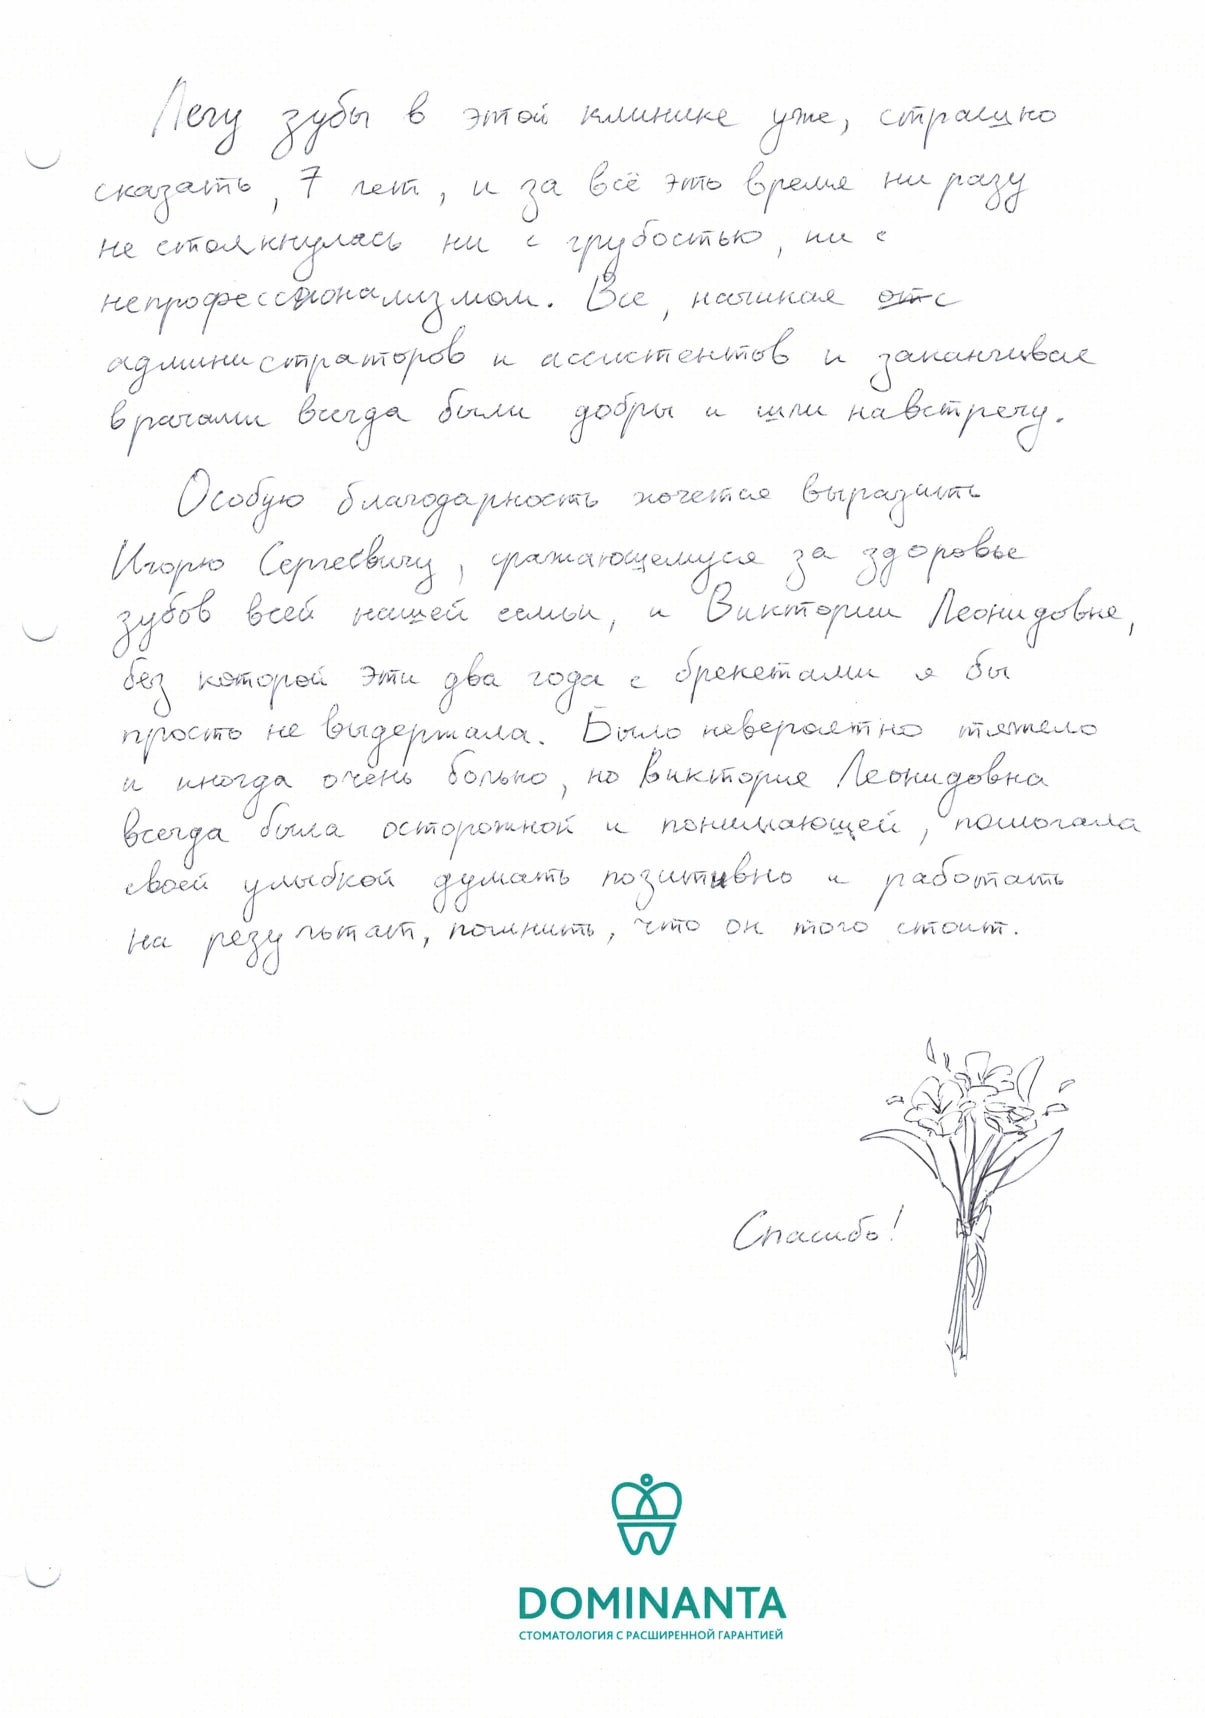 Лечу зубы в этой клинике уже, страшно
сказать, 7 лет, и за всё это время ни разу
не столкнулась ни с грубостью, ни с
непрофессионализмом. Все, начиная от с
администраторов и ассистентов и заканчивая
врачами всегда были добры и шли навстречу.
Особую благодарность хочется выразить
Игорю Сергеевичу, сражающемуся за здоровье
зубов всей нашей семьи, и Виктории Леонидовне,
без которой эти два года с брекетами я бы
просто не выдержала. Было невероятно тяжело
и иногда очень больно, но Виктория Леонидовна
всегда была осторожной и понимающей, помогала
своей улыбкой думать позитивно и работать
на результат, помнить, что он того стоит.
Спасибо!
DOMINANTA
СТОМАТОЛОГИЯ С РАСШИРЕННОЙ ГАРАНТИЕЙ